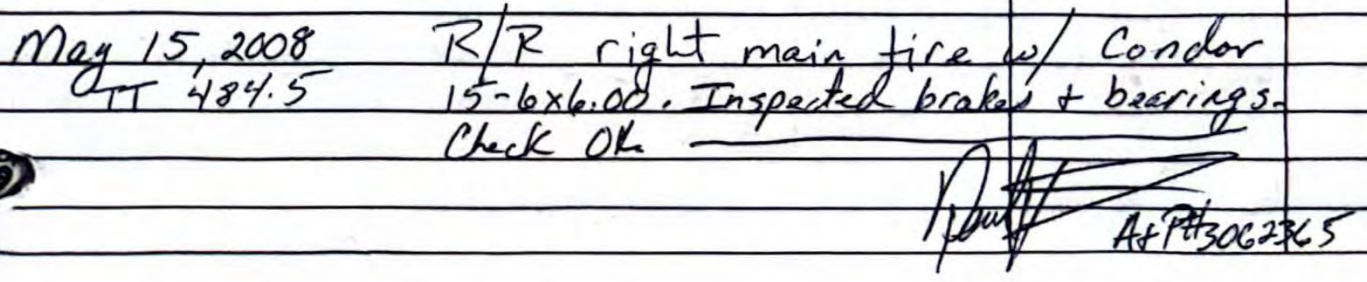 May 15, 2008 R/R right main tire w/ Condor
TT 484.5 15-6x6.00. Inspected brakes + bearings.
Check OK
A&P#3062365